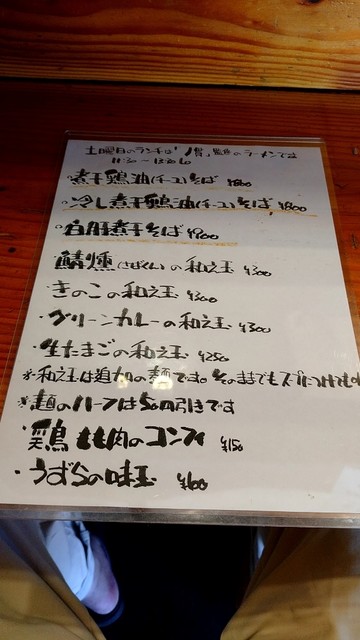 土曜日のランチは「胃」のラーメンです
11:30〜13:30 LO
煮干鶏油(チーユ)そば ¥800
・冷し煮干鶏油(チーユ)そば ¥800
・白肝煮干そば ¥900
・鯖燻(さばくん)の和え玉 ¥300
・きのこの和え玉 ¥300
・グリーンカレーの和え玉 ¥300
・生たまごの和え玉 ¥250
※和え玉は追加の麺です。そのままでもスープにつけても
※麺のハーフは50円引きです
・鶏もも肉のコンフィ ¥150
・うずらの味玉 ¥100